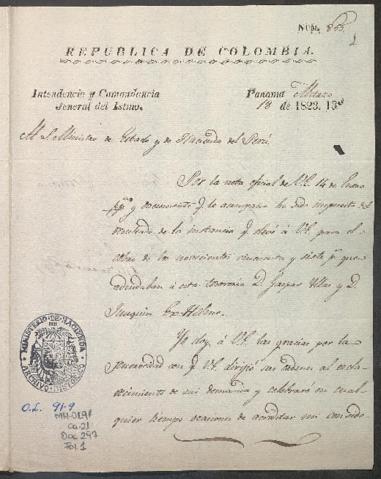 Núm. 865.
REPUBLICA DE COLOMBIA.
Intendencia y Comandancia
Jeneral del Istmo.
Panamá Marzo
18 de 1823. 13º
Al S. Ministro de Estado y de Hacienda del Perú.
Por la nota oficial de V.E. 14 de Enero
y documento q. la acompaña he sido impuesto del
resultado de la instancia q. elevé á V.E. para el
cobro de los novecientos cincuenta y siete p. que
adeudaban á esta tesorería D. Gaspar y D.
Joaquin
Yo doy á V.E. las gracias por la
puntualidad con q. V.E. dirijió sus ordenes al escla-
recimiento de mi demanda y celebraré en cual-
quier tiempo ocasiones de acreditar mi conside-
MINISTERIO DE HACIENDA
ARCHIVO HISTORICO
O.L. 91-9
Ca. 21
Doc 297
Fol. 1